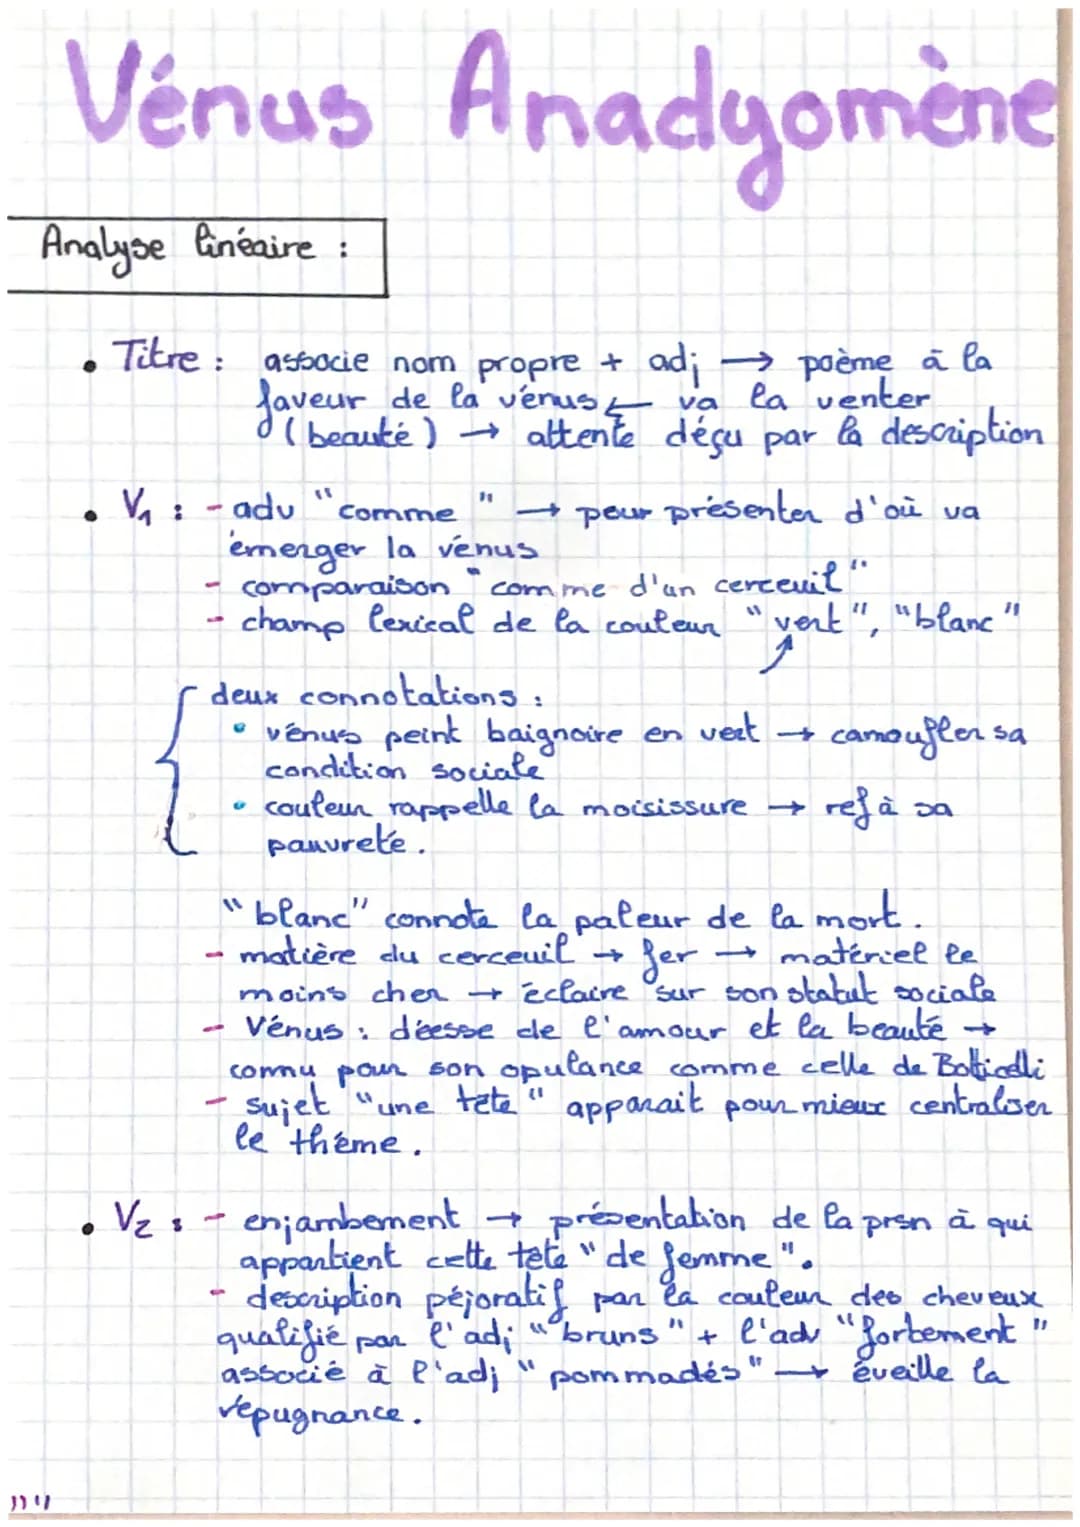 Vénus Anadyomène
Analyse linéaire :
• Titre : associe nom propre + adj → poème à la
faveur de la vénus ← va la venter
(beauté) → attente déçu par la description
• V1 : - adv "comme" → pour présenter d'où va
émerger la vénus
- comparaison "comme d'un cerceuil"
- champ lexical de la couleur "vert", "blanc"
deux connotations :
• vénus peint baignoire en vert → camoufler sa
condition sociale
• couleur rappelle la moisissure → ref à sa
pauvreté.
"blanc" connote la paleur de la mort.
- matière du cerceuil → fer → matériel le
moins cher → éclaire sur son statut sociale
- Vénus : déesse de l'amour et la beauté →
connu pour son opulance comme celle de Botticelli
- sujet "une tête" apparait pour mieux centraliser
le thème.
• V2 : - enjambement → présentation de la prsn à qui
appartient cette tête "de femme".
- description péjoratif par la couleur des cheveux
qualifié par l'adj "bruns" + l'adv "fortement"
associé à l'adj "pommadés" → éveille la
répugnance.